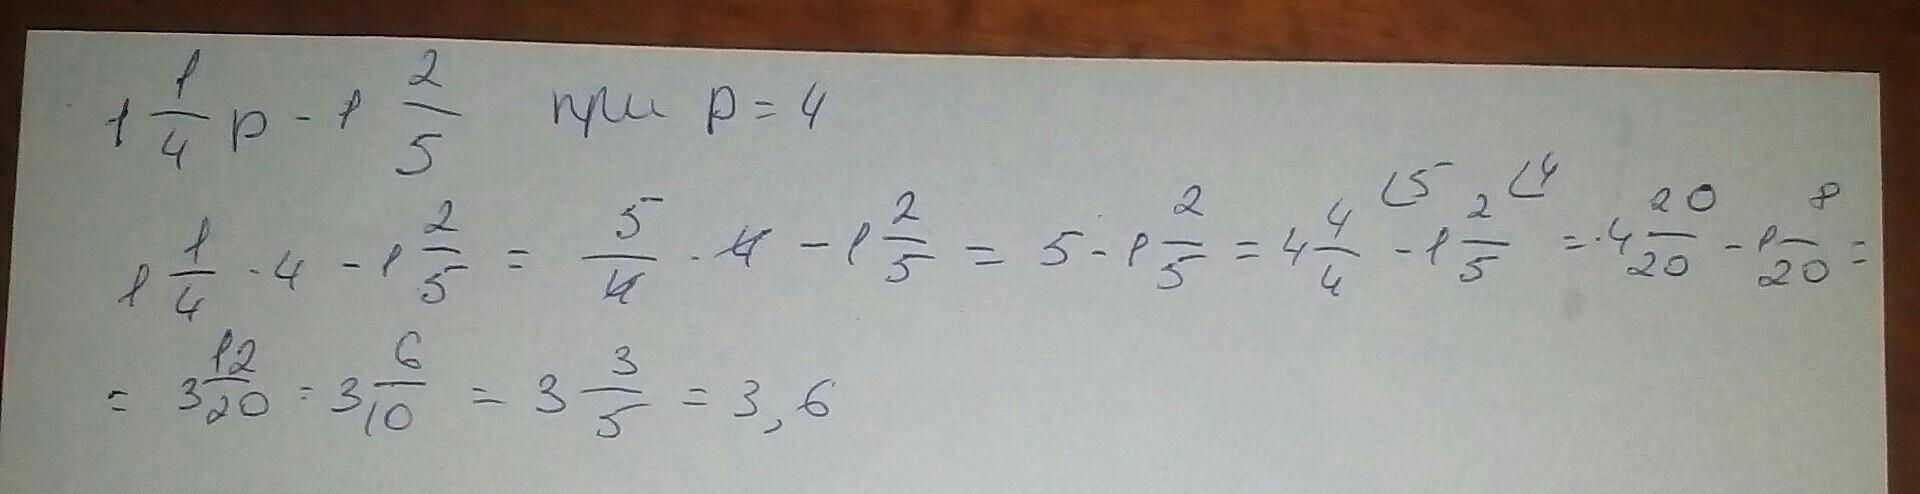 1 1/4 p - 1 2/5 при p = 4
1 1/4 · 4 - 1 2/5 = 5/4 · 4 - 1 2/5 = 5 - 1 2/5 = 4 4/4 (5 - 1 2/5 (4 = 4 20/20 - 1 8/20 =
= 3 12/20 = 3 6/10 = 3 3/5 = 3,6